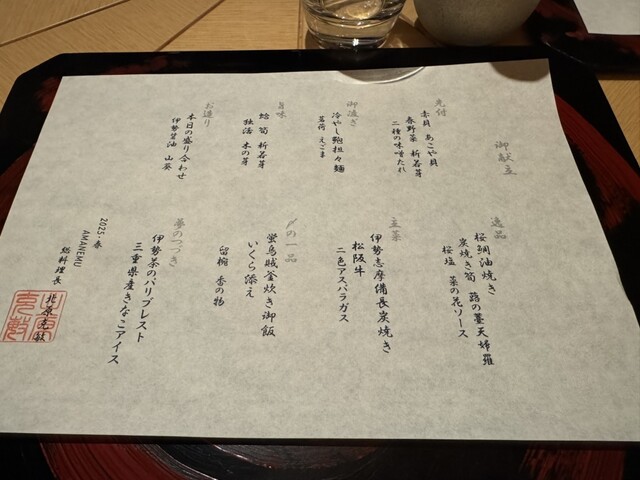 御献立
先付
赤貝 あこや貝
春野菜 新若芽
二種の味噌だれ
御凌ぎ
冷やし鮑担々麺
茗荷 えごま
旨味
蛤 筍 新若芽
独活 木の芽
お造り
本日の盛り合わせ
伊勢醤油 山葵
逸品
桜鯛油焼き
炭焼き筍 蕗の薹天婦羅
桜塩 菜の花ソース
主菜
伊勢志摩備長炭焼き
松阪牛
二色アスパラガス
〆の一品
蛍烏賊釜炊き御飯
いくら添え
留椀 香の物
夢のつづき
伊勢茶のパリブレスト
三重県産きなこアイス
2025.春
AMANEMU
総料理長
北原克毅